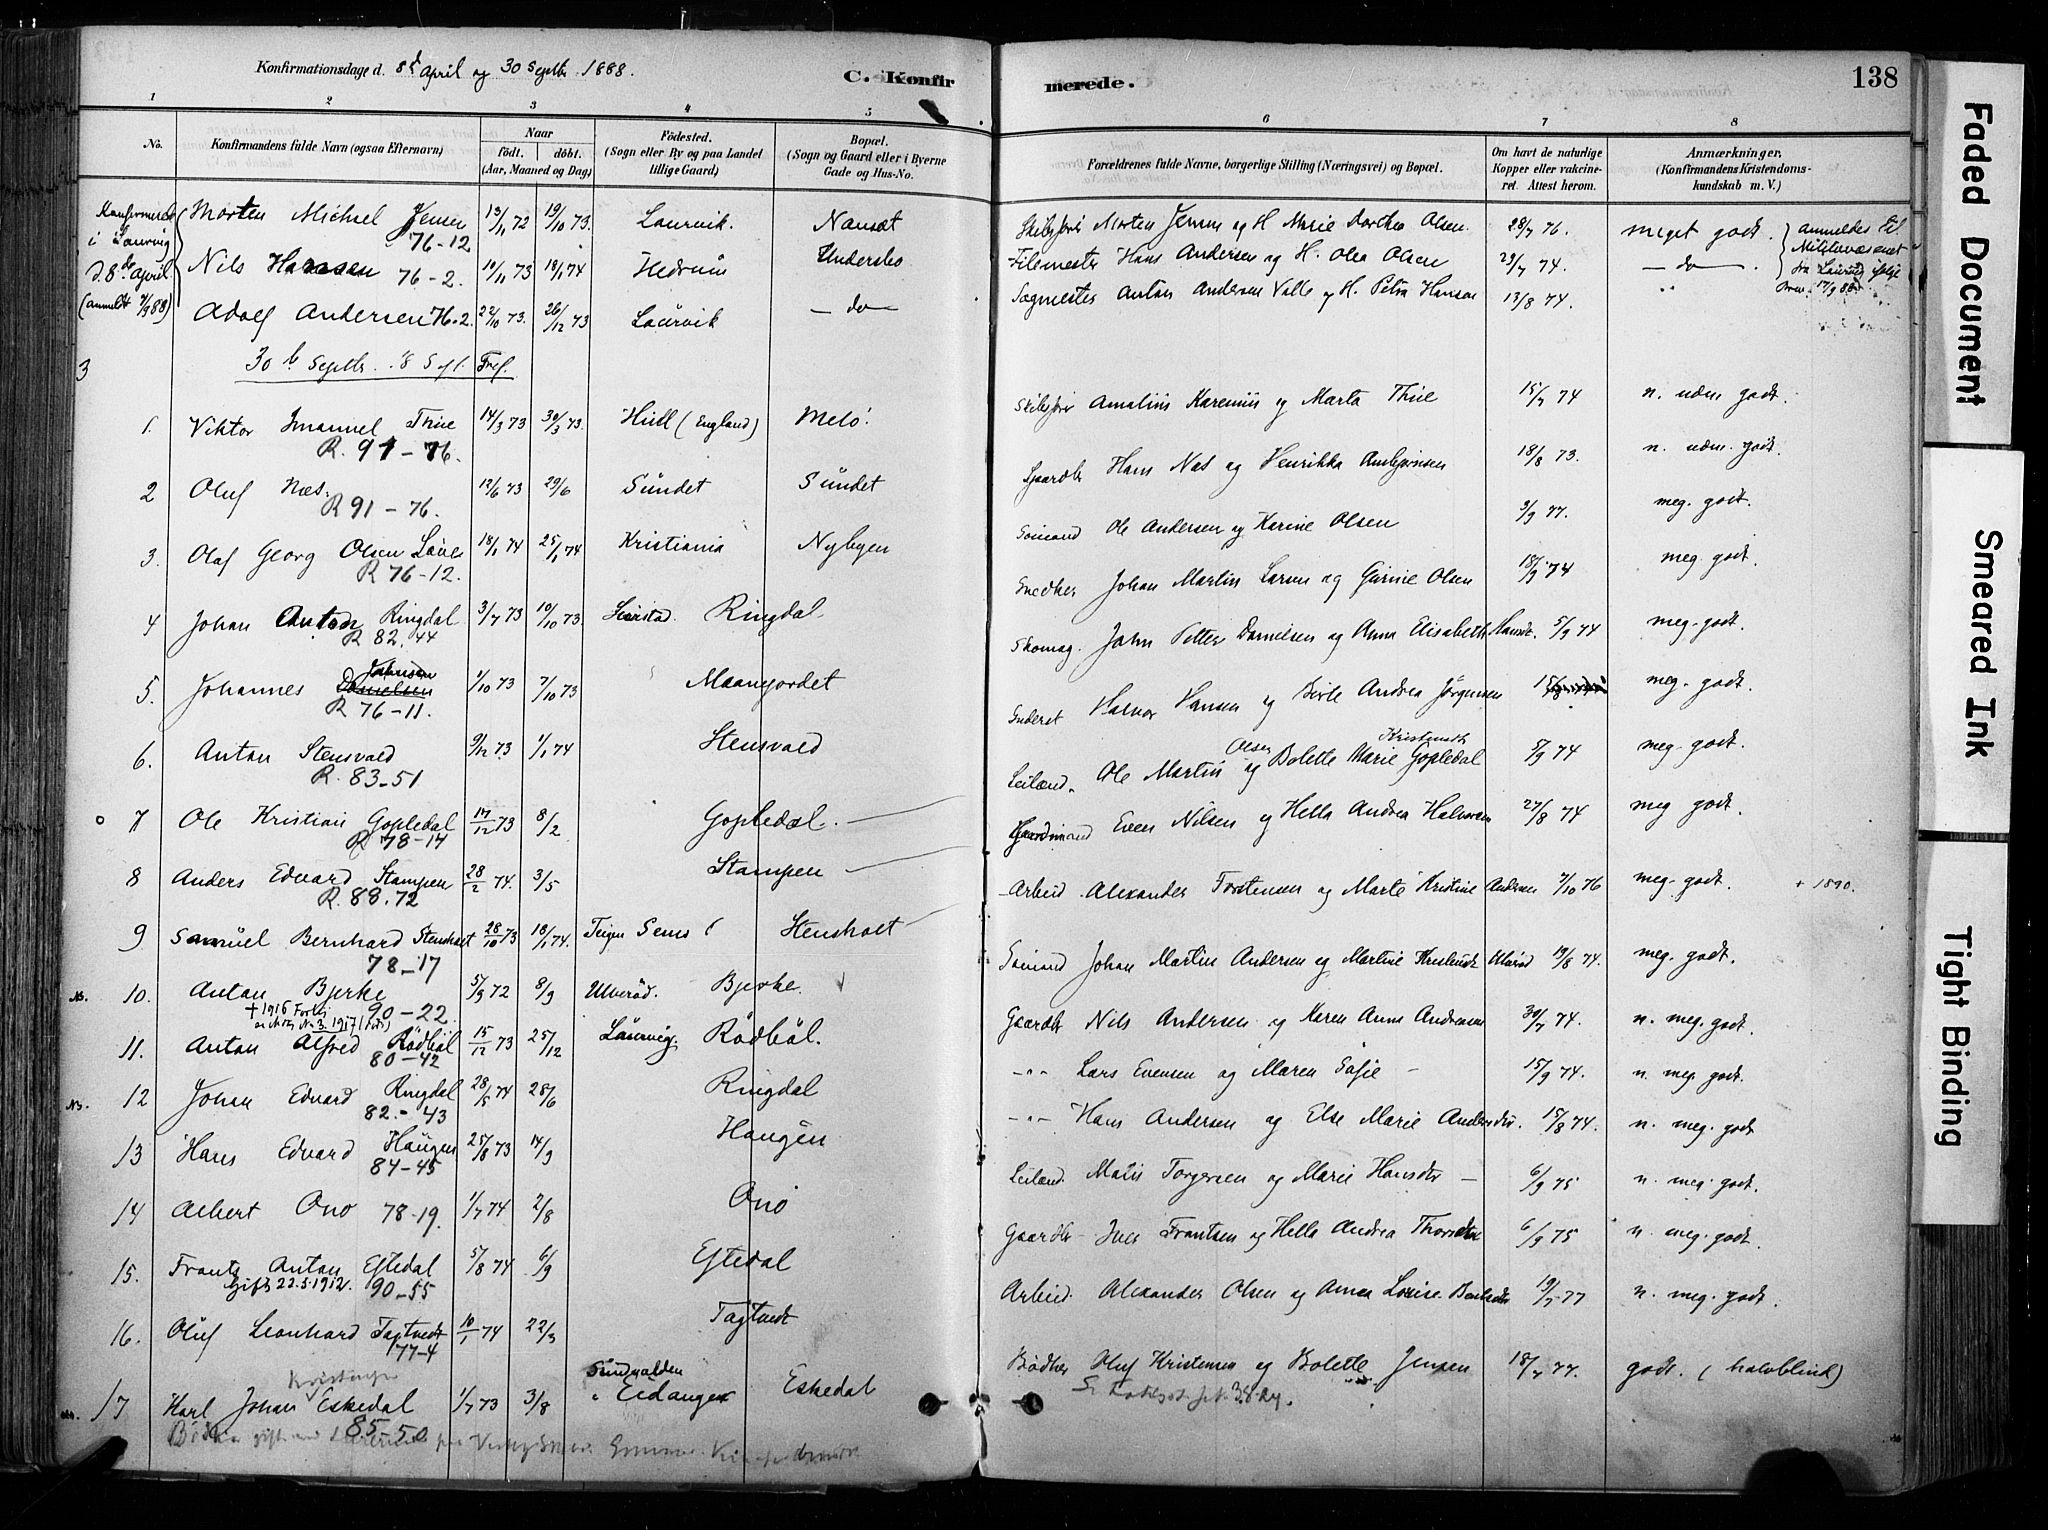 Konfirmationsdage d. 8d April og 30 Septbr. 1888.
C. Konfir
merede.
138
1 2 3 4 5 6 7 8
No.
Konfirmandens fulde Navn (ogsaa Efternavn)
Naar
födt. döbt.
(Aar, Maaned og Dag)
Födested.
(Sogn eller By og paa Landet
tillige Gaard)
Bopæl.
(Sogn og Gaard eller i Byerne
Gade og Hus-No.
Forældrenes fulde Navne, borgerlige Stilling (Næringsvei) og Bopæl.
Om havt de naturlige
Kopper eller vakcine-
ret. Attest herom.
Anmærkninger.
(Konfirmandens Kristendoms-
kundskab m. V.)
Konfirmeret
i Laurvig
d 8de April
(anmeldt 9/9 88)
Morten Michael Jensen 13/11 72 19/10 73. Laurvik. Nansæt Morten Jensen og H Marie Dorthea Olsen 28/7 76. meget godt.
76-12
Nils Hansen 76-2. 10/11 73 18/1 74 Hedrum Undersbo Filemester Hans Andersen og H. Olea Olsen 29/7 74. - do -
Adolf Andersen 76-2. 22/10 73. 26/12 73 Laurvik - do - Sagmester Anton Andersen Valle og H. Petra Hansen 13/8 74. "
anmeldes til
Militærvæsenet
fra Laurvig ifølge
Brev. 17/9 88
3
30 te Septbr.
1. Viktor Imanuel Thue 14/3 73 30/3 73. Hull (England) Melö. Amalius Karenius og Marta Thue 15/7 74 n. udm. godt.
R. 91-76.
2 Oluf Næs. 12/6 73 29/6 Sundet Sundet Gaardbr Hans Næs og Henrikka Ambjörnsen 18/8 73. n. udm. godt.
R 91-76.
3. Olaf Georg Olsen 18/1 74 25/1 74 Kristiania Nybyen Sömand Ole Andersen og Karine Olsen 3/9 77. meg. godt.
R 76-12.
4 Johan Anton Ringdal 3/7 73 10/10 73. Ringdal Snedker Johan Martin Larsen og Gurine Olsen 18/9 74 meg. godt.
R 82.44
5. Johannes Danielsen Johnsen 1/10 73 7/10 73 Maanejordet Skomag. John Petter Danielsen og Anna Elisabeth Hansdt. 5/9 74 meg. godt.
R 76-11.
6. Anton Stensvald 9/12 73 1/1 74 Stensvold Halvor Hansen og Berte Andrea Jörgensen 15/8 meg. godt.
R. 83-51
7 Ole Kristian Gopledal 17/12 73 8/2 Gopledal. Leilænd. Ole Martin Olsen og Bolette Marie Kristensdt Gopledal 5/9 74 meg. godt.
R 78-14
8 Anders Edvard Stampen 28/2 74. 3/5 Stampen Gaardmand Even Nilsen og Hella Andrea Halvorsen 27/8 74 meg godt.
R. 88.72
9 Samuel Bernhard Stensholt 28/10 73 18/1 74. Teigen Sems Stensholt Arbeid Alexander Torstensen og Marte Kristine Andersen 7/10 76 meg. godt. + 1890.
78-17
10. Anton Bjerke 5/9 72 8/9 Ulveröd. Bjerke. Sömand Johan Martin Andersen og Martine 19/8 74. meg. godt.
+ 1916 90-22.
11. Anton Alfred Rödböl 15/12 73 25/12 Laurvig. Rödböl. Gaardbr Nils Andersen og Karen Anne Andersen 30/7 74. n. meg. godt.
80-42
12 Johan Edvard Ringdal 28/5 74 28/6 Ringdal -"- Lars Evensen og Maren Sofie - 15/9 74. n. meg. godt.
82.-43
13 Hans Edvard Haugen 25/8 73 14/9 Haugen -"- Hans Andersen og Else Marie Andersdtr. 15/8 74. n. meg. godt
84-45
14 Albert Onö 78-19. 1/7 74 2/8 Onö Leilænd. Torgersen og Marie Hansdtr - 6/9 75 n. meg. godt.
15. Frants Anton Eftedal 5/8 74 6/9 Eftedal Gaardbr - Iver Frantsen og Hella Andrea 6/9 75 n. meg. godt.
Gift 22.5.1912. 90-55
16. Oluf Leonhard Tagtvedt 10/1 74 22/3 Tagtvedt Arbeid. Alexander Olsen og Anna Lovise 19/7 77 n. meg. godt.
77-4
17 Karl Johan Eskedal 1/7 73 3/8 Eidanger Eskedal Bödker Oluf Kristensen og Bolette Jensen 18/7 77. godt. (halvblind)
85-50
Faded Document
Smeared Ink
Tight Binding